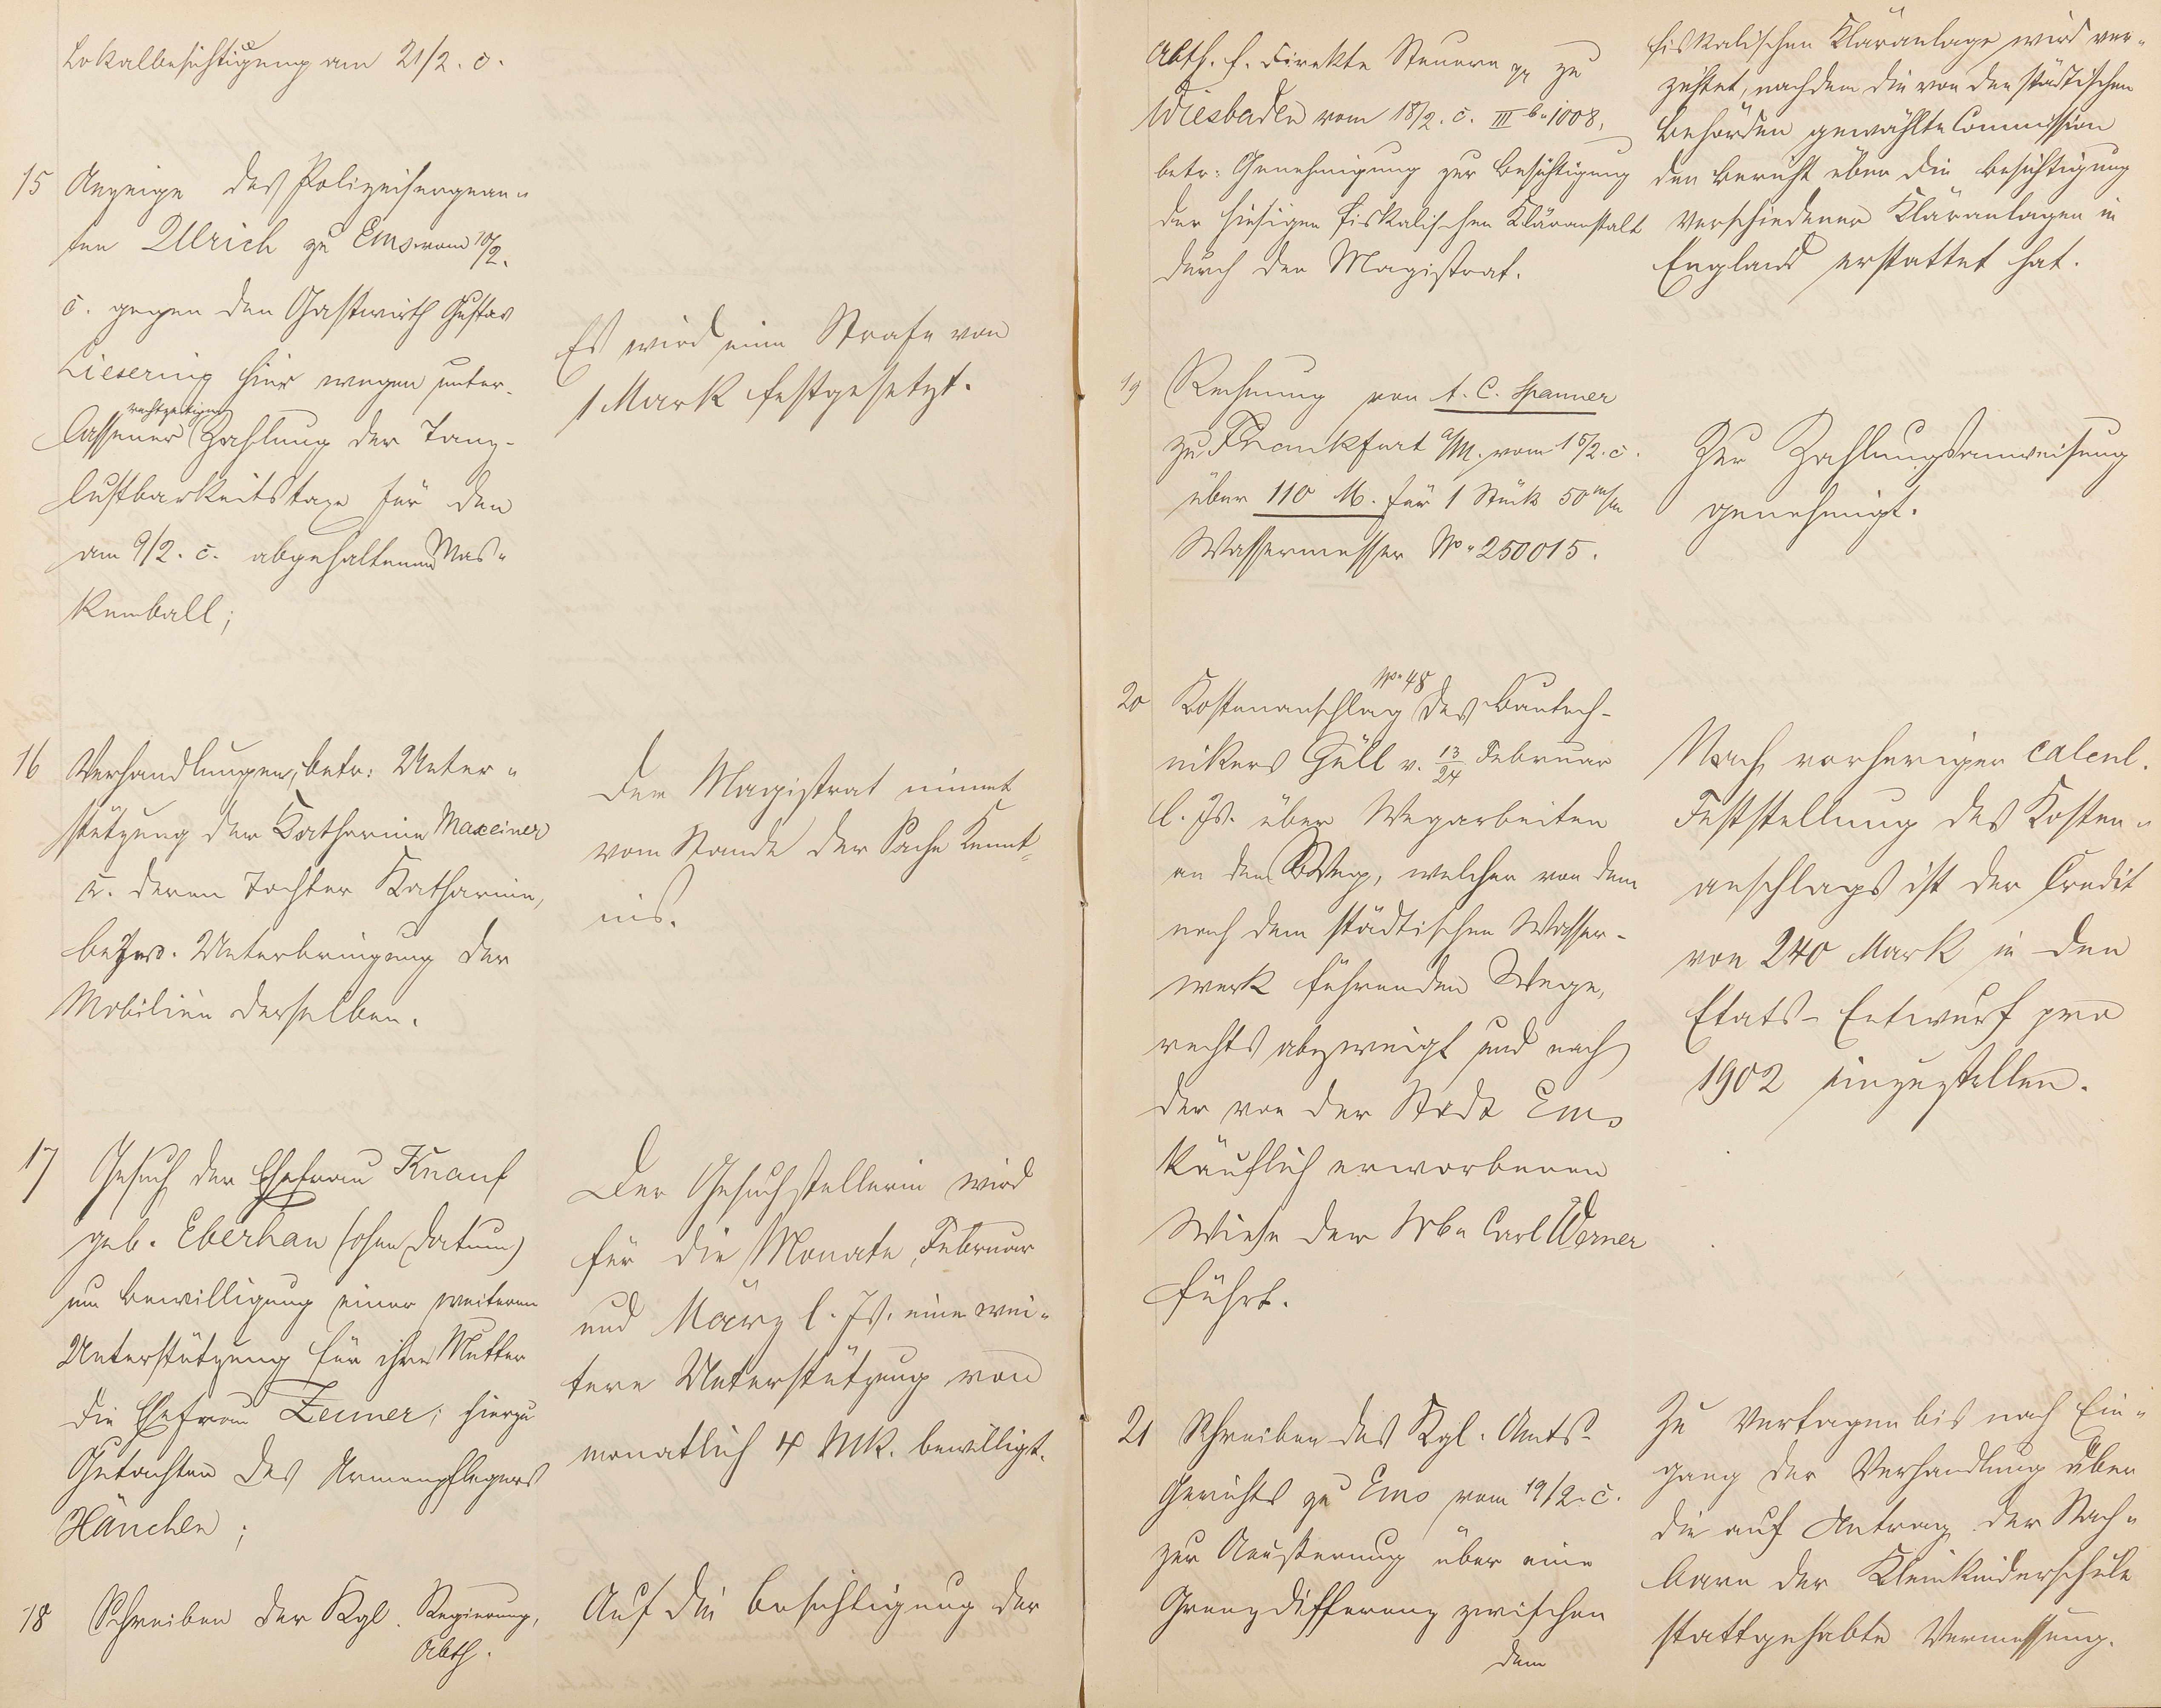 Lokalbesichtigung am 21/2. c.
15 Anzeige des Polizeisergean-
ten Ullrich zu Ems vom 10/2.
c. gegen den Gastwirth Gustav
Liesering hier wegen unter-
rechtzeitiger
lassener Zahlung der Tanz-
lustbarkeitstaxe für den
am 9/2. c. abgehaltenen Mas-
kenball;
Es wird eine Strafe von
1 Mark festgesetzt.
16 Verhandlungen, betr: Unter-
stützung der Katharina Maxeiner
u. deren Tochter Katharina,
bezw. Unterbringung der
Mobilien derselben.
Der Magistrat nimmt
vom Stande der Sache Kennt-
nis.
17 Gesuch der Ehefrau Knauf
geb. Eberhan (ohne Datum)
um Bewilligung einer weiteren
Unterstützung für ihre Mutter
die Ehefrau Zeuner; hierzu
Gutachten des Armenpflegers
Hänchen;
Der Gesuchstellerin wird
für die Monate Februar
und März l. Js. eine wei-
tere Unterstützung von
monatlich 4 Mk. bewilligt.
18 Schreiben der Kgl. Regierung,
Abth.
Auf die Besichtigung der
Abth. f. direkte Steuern zu
Wiesbaden vom 18/2. c. III b. 1008,
betr: Genehmigung zur Besichtigung
der hiesigen fiskalischen Kläranstalt
durch den Magistrat.
fiskalischen Kläranlage wird ver-
zichtet, nachdem die von den städtischen
Behörden gewählte Commission
den Bericht über die Besichtigung
verschiedener Kläranlagen in
England erstattet hat.
19 Rechnung von A. C. Spanner
zu Frankfurt a/M. vom 15/2. c.
über 110 M. für 1 Stück 50 m/m
Wassermesser No 250015.
Zur Zahlungsanweisung
genehmigt.
No 48
20 Kostenanschlag des Bautech-
nikers Güll v. 13/24 Februar
l. Js. über Wegarbeiten
an dem Weg, welcher von dem
nach dem städtischen Wasser-
werk führenden Wege,
rechts abzweigt und nach
der von der Stadt Ems
käuflich erworbenen
Wiese der Wwe Carl Werner
führt.
Nach vorheriger calcul.
Feststellung des Kosten-
anschlags ist der Credit
von 240 Mark in den
Etats-Entwurf pro
1902 einzustellen.
21 Schreiben des Kgl. Amts-
Gerichts zu Ems vom 19/2. c.
zur Aeußerung über eine
Grenzdifferenz zwischen
dem
Zu vertagen bis nach Ein-
gang der Verhandlung über
die auf Antrag der Nach-
barn der Kleinkinderschule
stattgehabte Vermessung.